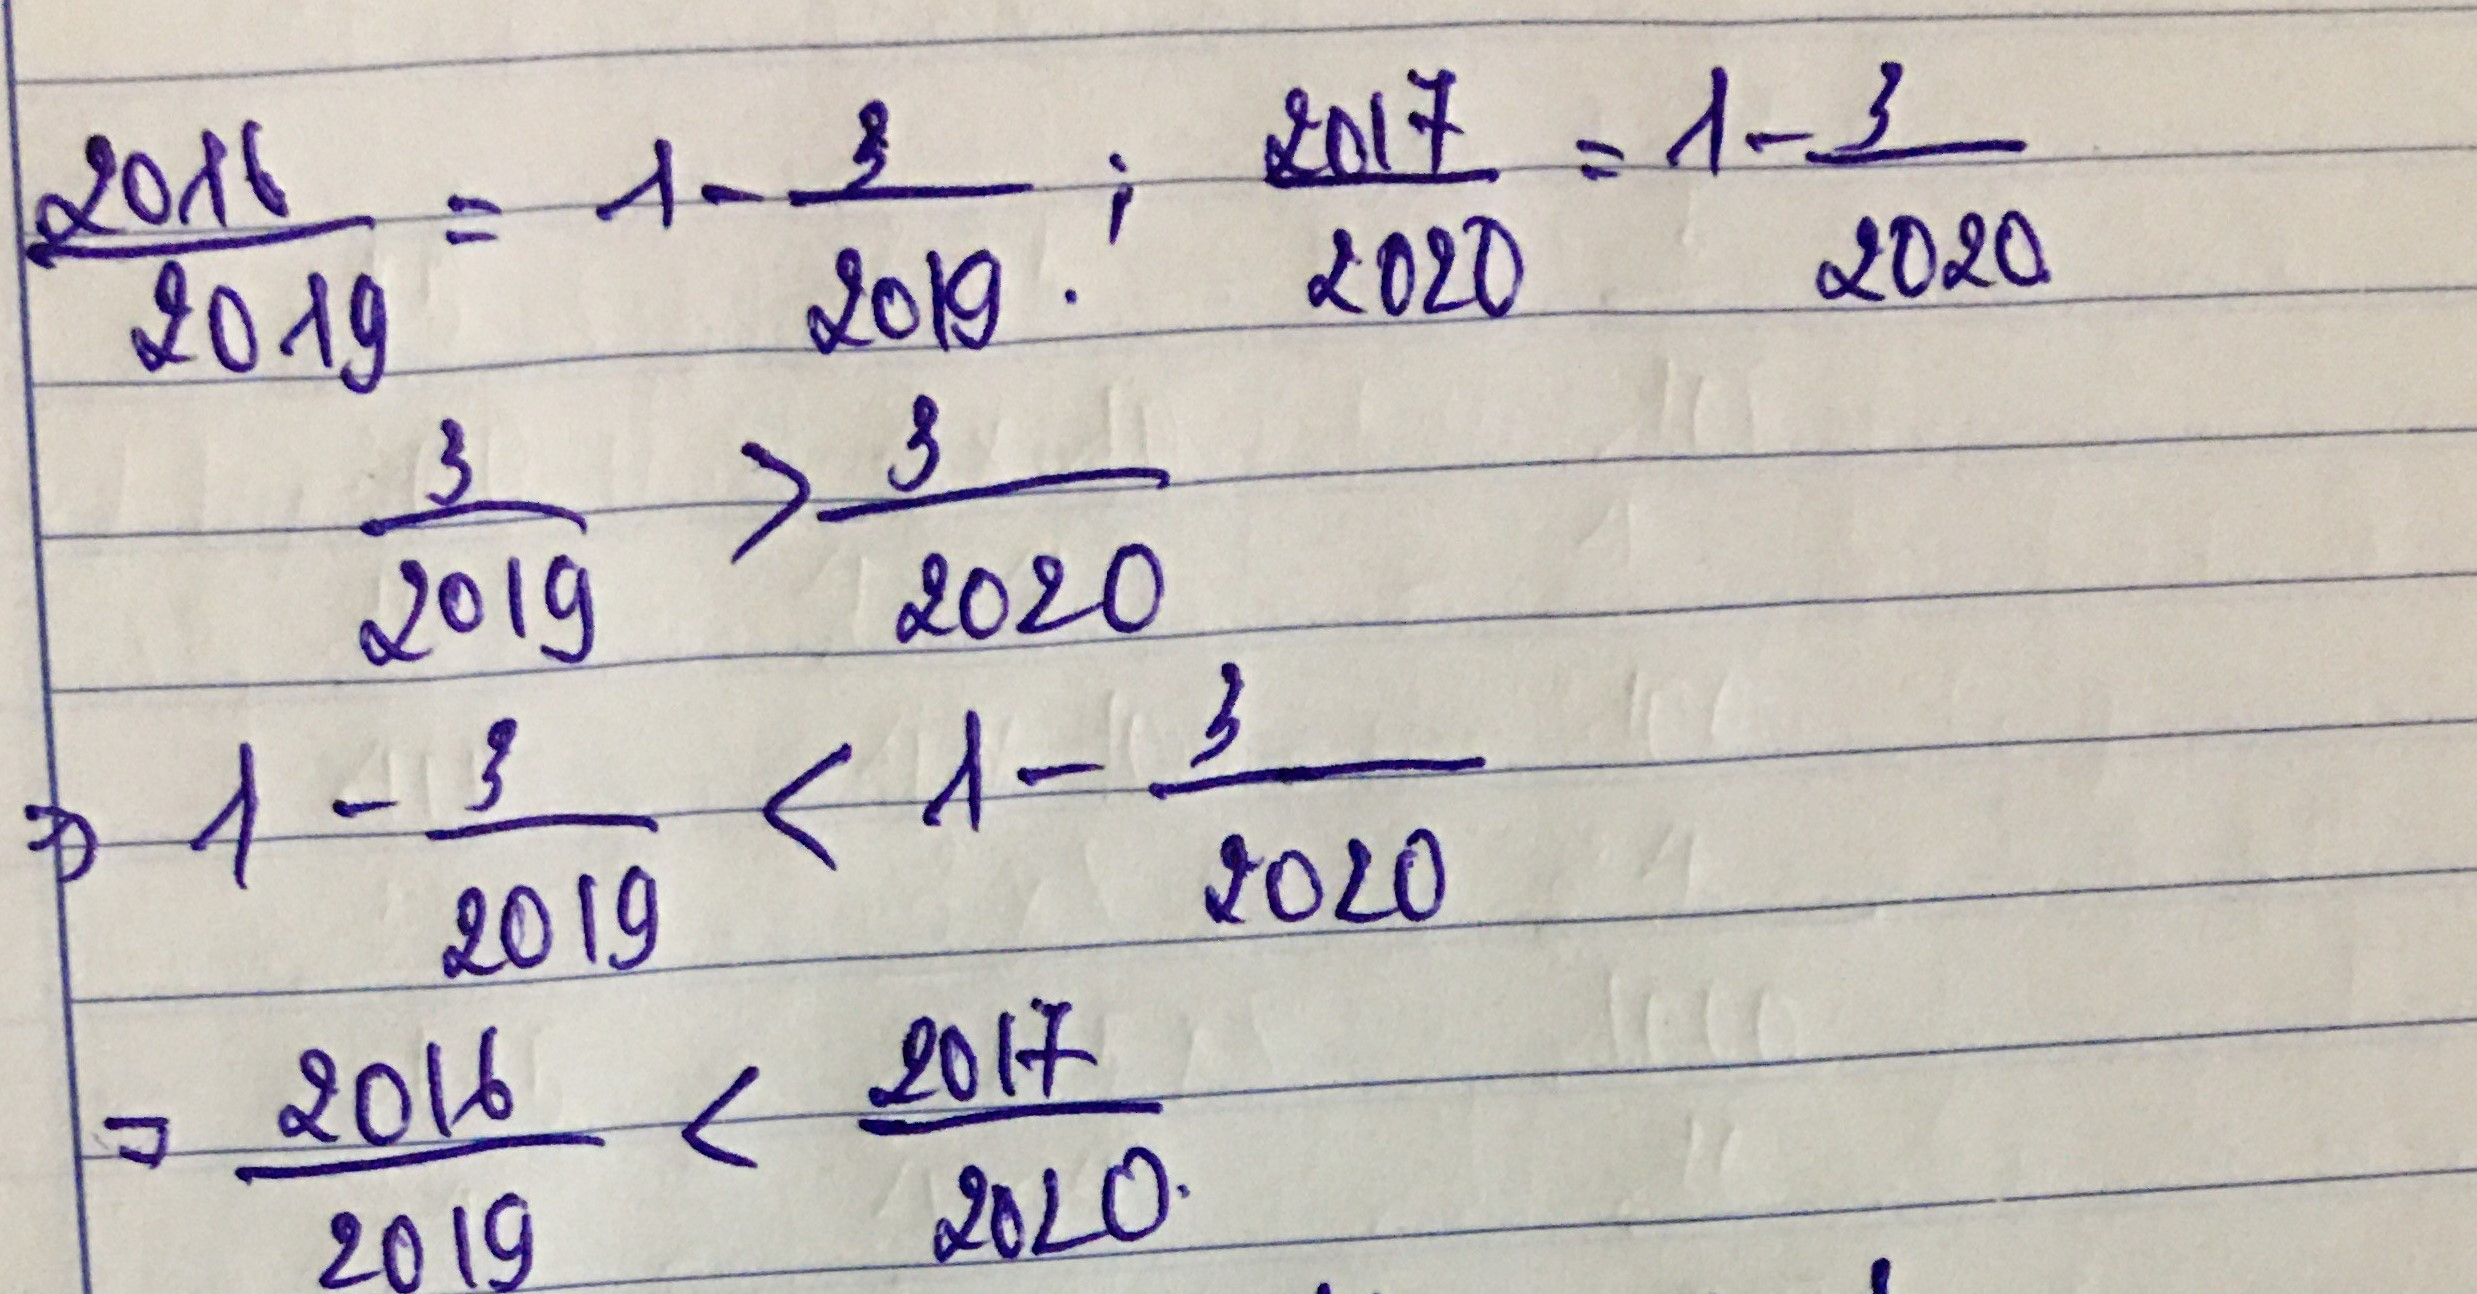 2016/2019 = 1 - 3/2019 . ; 2017/2020 = 1 - 3/2020
3/2019 > 3/2020
⇒ 1 - 3/2019 < 1 - 3/2020
= 2016/2019 < 2017/2020.